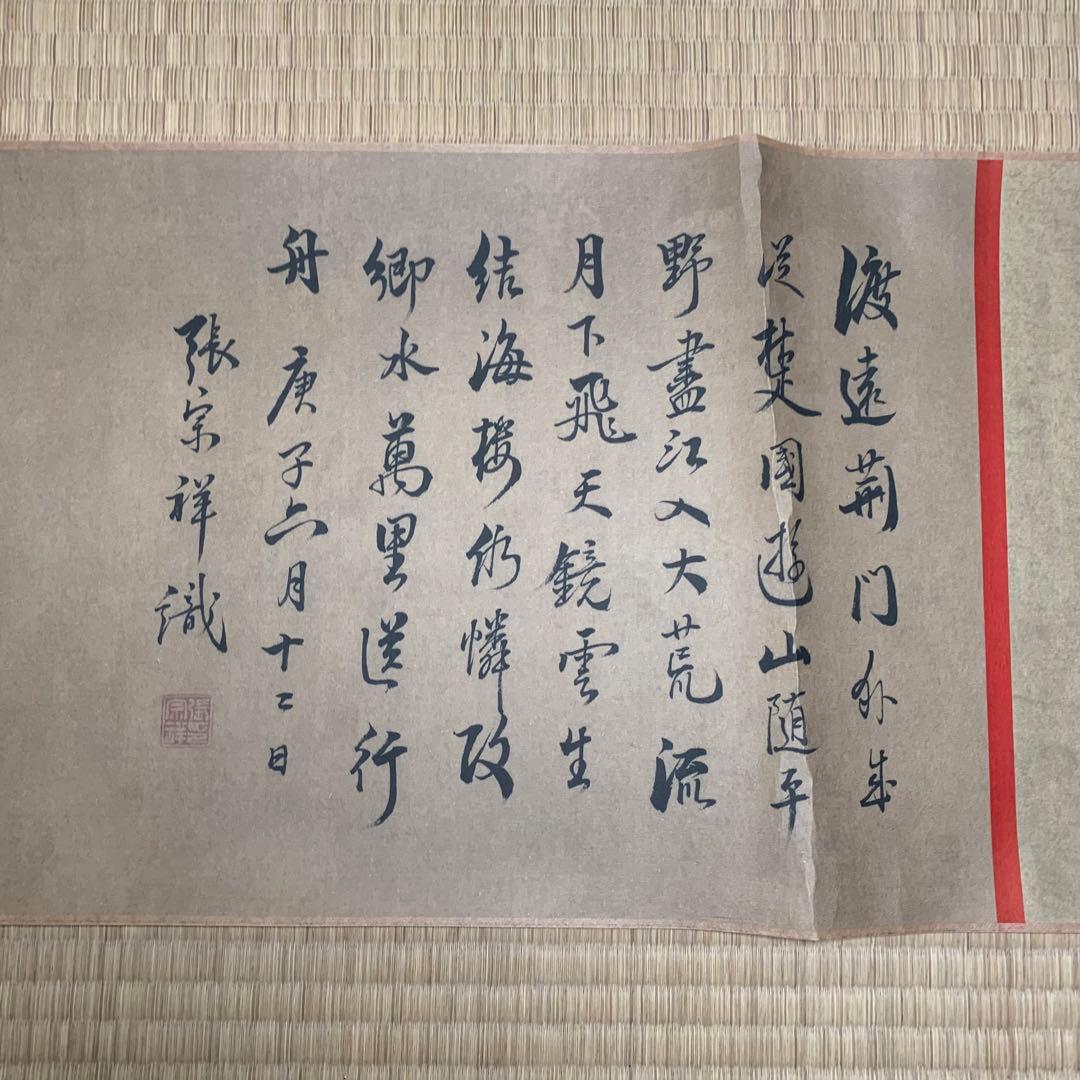 渡遠荊门外来
從楚國遊山随平
野盡江入大荒流
月下飛天鏡雲生
結海樓仍憐故
鄉水萬里送行
舟 庚子六月十二日
張宗祥識